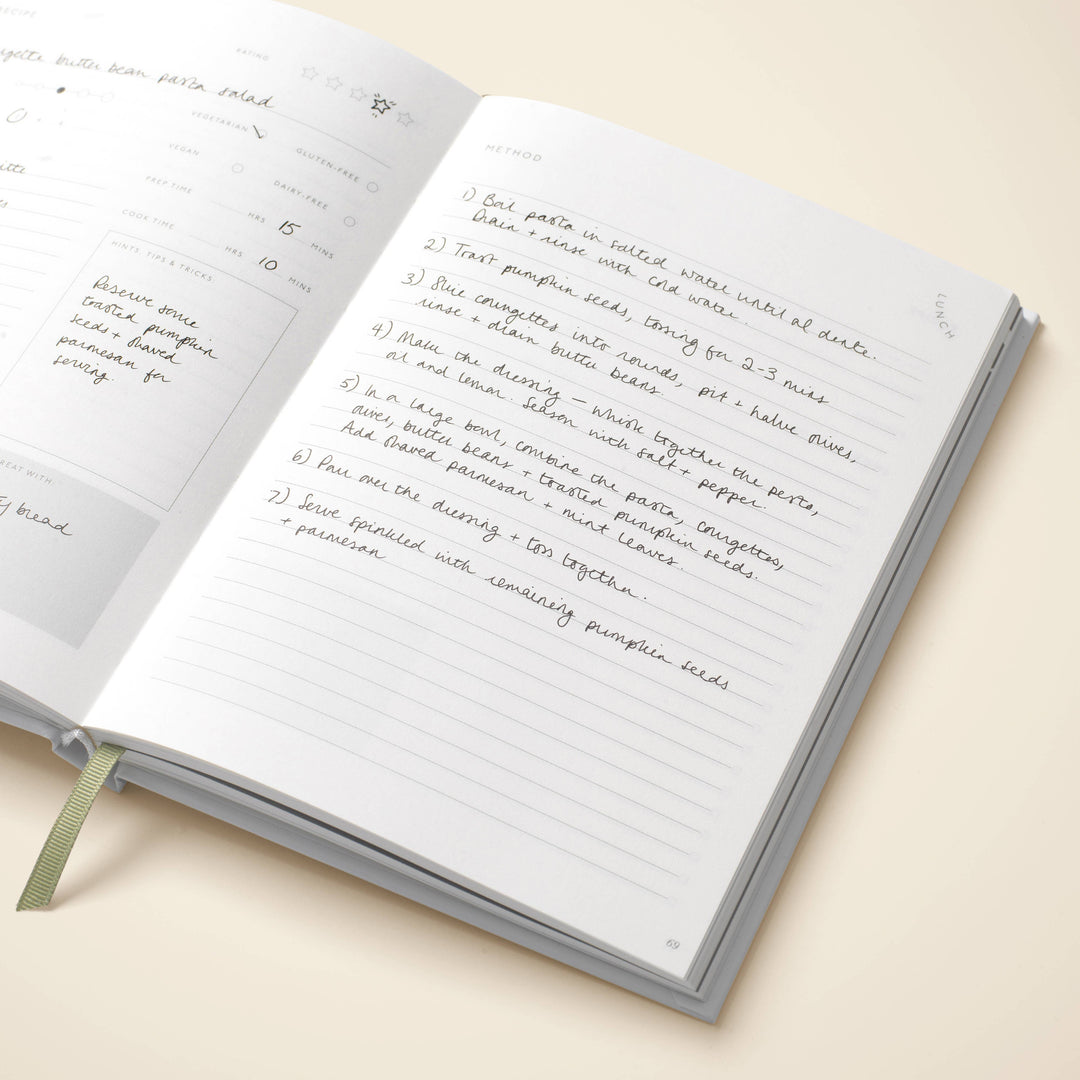 RECIPE
RATING
butter bean pasta salad
VEGETARIAN
GLUTEN-FREE
VEGAN
DAIRY-FREE
PREP TIME HRS 15 MINS
COOK TIME HRS 10 MINS
HINTS, TIPS & TRICKS
Reserve some
toasted pumpkin
seeds + shaved
parmesan for
serving.
bread
METHOD
1) Boil pasta in salted water until al dente.
Drain + rinse with cold water.
2) Toast pumpkin seeds, tossing for 2-3 mins
3) Slice courgettes into rounds, pit + halve olives,
rinse + drain butter beans.
4) Make the dressing – whisk together the pesto,
oil and lemon. Season with salt + pepper.
5) In a large bowl, combine the pasta, courgettes,
olives, butter beans + toasted pumpkin seeds.
Add shaved parmesan + mint leaves.
6) Pour over the dressing + toss together.
7) Serve sprinkled with remaining pumpkin seeds
+ parmesan
LUNCH
69